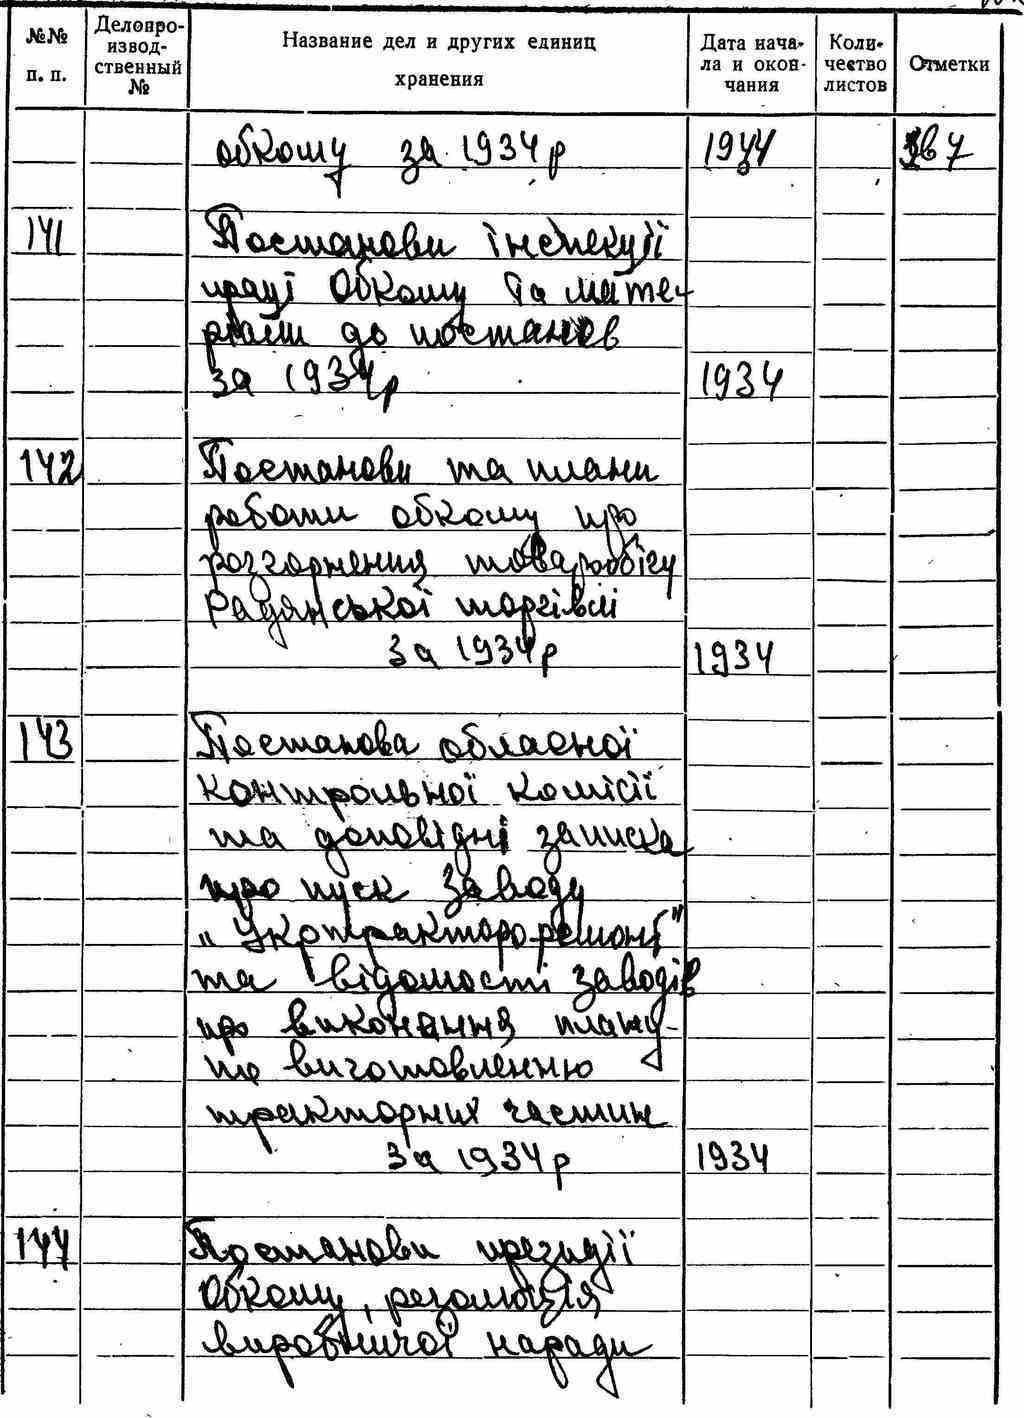 №№ п. п.
Делопро-
извод-
ственный
№
Название дел и других единиц
хранения
Дата нача-
ла и окон-
чания
Коли-
чество
листов
Отметки
обкому за 1934 р 1934
141 Постанови інспекції
праці Обкому та мате-
ріали до постанов
за 1934 р 1934
142 Постанови та плани
роботи обкому про
розгорнення товарообігу
Радянської торгівлі
за 1934 р 1934
143 Постанова обласної
контрольної комісії
та доповідні записка
про пуск заводу
„Укртракторремонт"
та відомості заводів
про виконання плану
по виготовленню
тракторних частин
за 1934 р 1934
144 Постанови президії
Обкому, резолюція
виробничої наради